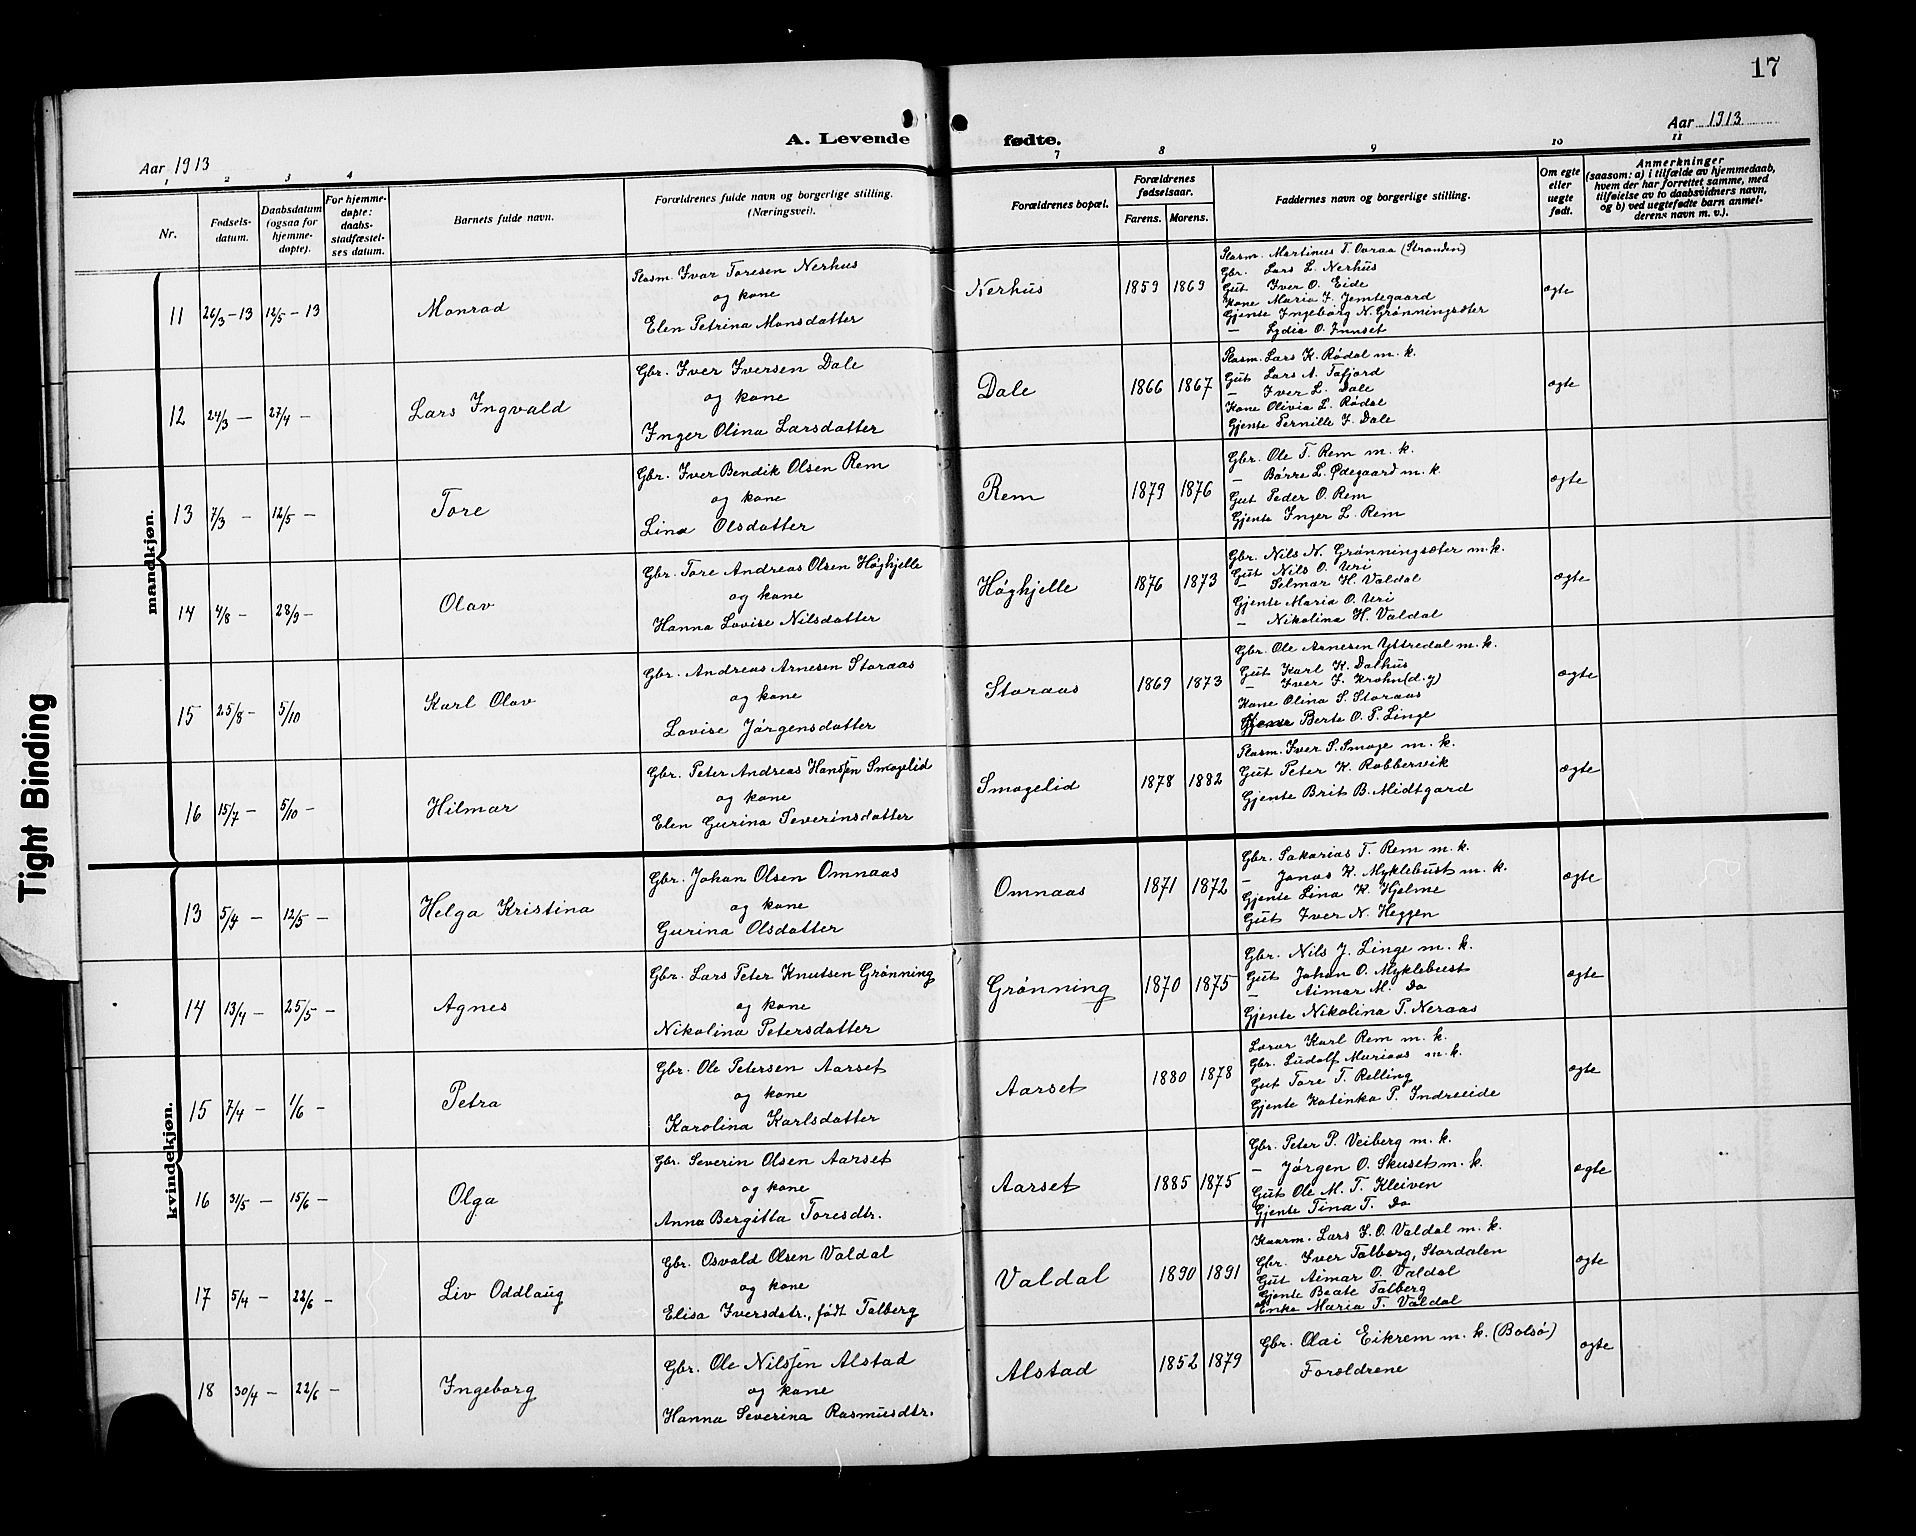 17
A. Levende fødte.
Aar 1913
Aar 1913
1 2 3 4 7 8 9 10 11
Nr.
Fødsels-
datum.
Daabsdatum
(ogsaa for
hjemme-
døpte).
For hjemme-
døpte:
daabs-
stadfæstel-
ses datum.
Barnets fulde navn.
Forældrenes fulde navn og borgerlige stilling.
(Næringsvei).
Forældrenes bopæl.
Forældrenes
fødselsaar.
Farens. Morens.
Faddernes navn og borgerlige stilling.
Om egte
eller
uegte
født.
Anmerkninger
(saasom: a) i tilfælde av hjemmedaab,
hvem der har forrettet samme, med
tilføielse av to daabsvidners navn,
og b) ved uegtefødte barn anmel-
derens navn m. v.).
mandkjøn.
11 26/3-13 12/5-13 Monrad
Plasm. Ivar Toresen Nerhus
og kone
Elen Petrina Monsdatter
Nerhus 1859 1869
Plasm. Martinus T. Ovraa (Stranden)
Gbr. Lars L. Nerhus
Gut Iver O. Eide
Kone Maria J. Jemtegaard
Gjente Ingeborg N. Grønningsæter
— Lydia O. Innset
ægte
12 24/3 — 27/4 — Lars Ingvald
Gbr. Iver Iversen Dale
og kone
Inger Olina Larsdatter
Dale 1866 1867
Plasm. Lars K. Rødal m. k.
Gut Lars A. Tafjord
— Iver L. Dale
Kone Olivia L. Rødal
Gjente Pernille I. Dale
ægte
13 7/3 — 12/5 — Tore
Gbr. Iver Bendik Olsen Rem
og kone
Lina Olsdatter
Rem 1879 1876
Gbr. Ole T. Rem m. k.
— Børre L. Ødegaard m. k.
Gut Peder O. Rem
Gjente Inger L. Rem
ægte
14 4/8 — 28/9 — Olav
Gbr. Tore Andreas Olsen Høghjelle
og kone
Hanna Lovise Nilsdatter
Høghjelle 1876 1873
Gbr. Nils N. Grønningsæter m. k.
Gut Nils O. Uri
— Selmar H. Valdal
Gjente Maria O. Uri
— Nikolina H. Valdal
ægte
15 25/8 — 5/10 Karl Olav
Gbr. Andreas Arnesen Storaas
og kone
Lovise Jørgensdatter
Storaas 1869 1873
Gbr. Ole Arnesen Yttredal m. k.
Gut Karl K. Dalhus
— Iver I. Krohn (d. y)
Kone Olina S. Storaas
Berte O. P. Linge
ægte
16 15/7 — 5/10 — Hilmar
Gbr. Peter Andreas Hanssen Smogelid
og kone
Elen Gurina Severinsdatter
Smogelid 1878 1882
Plasm. Iver S. Smoge m. k.
Gut Peter K. Robbervik
Gjente Brit B. Midtgard
ægte
kvindekjøn.
13 5/4 — 12/5 — Helga Kristina
Gbr. Johan Olsen Omnaas
og kone
Gurina Olsdatter
Omnaas 1871 1872
Gbr. Sakarias T. Rem m. k.
— Jonas K. Myklebust m. k.
Gjente Lina K. Hjelme
Gut Iver N. Heggen
ægte
14 13/4 — 25/5 — Agnes
Gbr. Lars Peter Knutsen Grønning
og kone
Nikolina Petersdatter
Grønning 1870 1875
Gbr. Nils J. Linge m. k.
Gut Johan O. Myklebust
— Aimar M. Do
Gjente Nikolina P. Neraas
ægte
15 7/4 — 1/6 — Petra
Gbr. Ole Petersen Aarset
og kone
Karolina Karlsdatter
Aarset 1880 1878
Lærar Karl Rem m. k.
Gbr. Ludolf Muriaas m. k.
Gut Tore T. Relling
Gjente Katinka P. Indreeide
ægte
16 31/5 — 15/6 — Olga
Gbr. Severin Olsen Aarset
og kone
Anna Bergitta Toresdtr.
Aarset 1885 1875
Gbr. Peter P. Veiberg m. k.
— Jørgen O. Skuset m. k.
Gut Ole M. T. Kleiven
Gjente Tina T. Do
ægte
17 5/4 — 22/6 — Liv Oddlaug
Gbr. Osvald Olsen Valdal
og kone
Elisa Iversdatr., født Talberg
Valdal 1890 1891
Kaarm. Lars I. O. Valdal m. k.
Gbr. Iver Talberg, Stordalen
Gut Aimar O. Valdal
Gjente Beate Talberg
Enke Maria T. Valdal
ægte
18 30/4 — 22/6 — Ingeborg
Gbr. Ole Nilssen Alstad
og kone
Hanna Severina Rasmusdtr.
Alstad 1852 1879
Gbr. Olai Eikrem m. k. (Bolsø)
Forældrene
ægte
Tight Binding